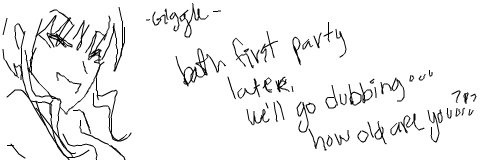 -Giggle-
bath first party
later.
we'll go dubbing...
how old are you....???